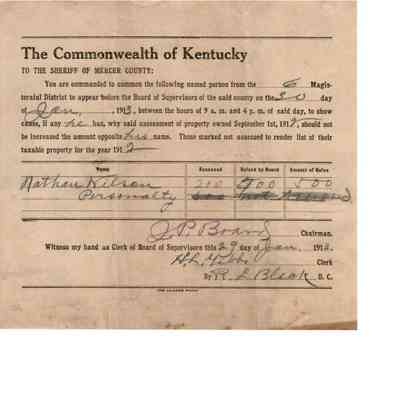 The Commonwealth of Kentucky
TO THE SHERIFF OF MERCER COUNTY:
You are commanded to summon the following named person from the 6 Magis-
terial District to appear before the Board of Supervisors of the said county on the 30 day
of Jan, 1913, between the hours of 9 a. m. and 4 p. m. of said day, to show
cause, if any he has, why said assessment of property owned September 1st, 1912, should not
be increased the amount opposite his name. Those marked not assessed to render list of their
taxable property for the year 1912
Name Assessed Raised by Board Amount of Raise
Nathan 200 700 500
Personalty
J. P. Board Chairman.
Witness my hand as Clerk of Board of Supervisors this 29 day of Jan. 191
H. L. Clerk
By R. L. Black D. C.